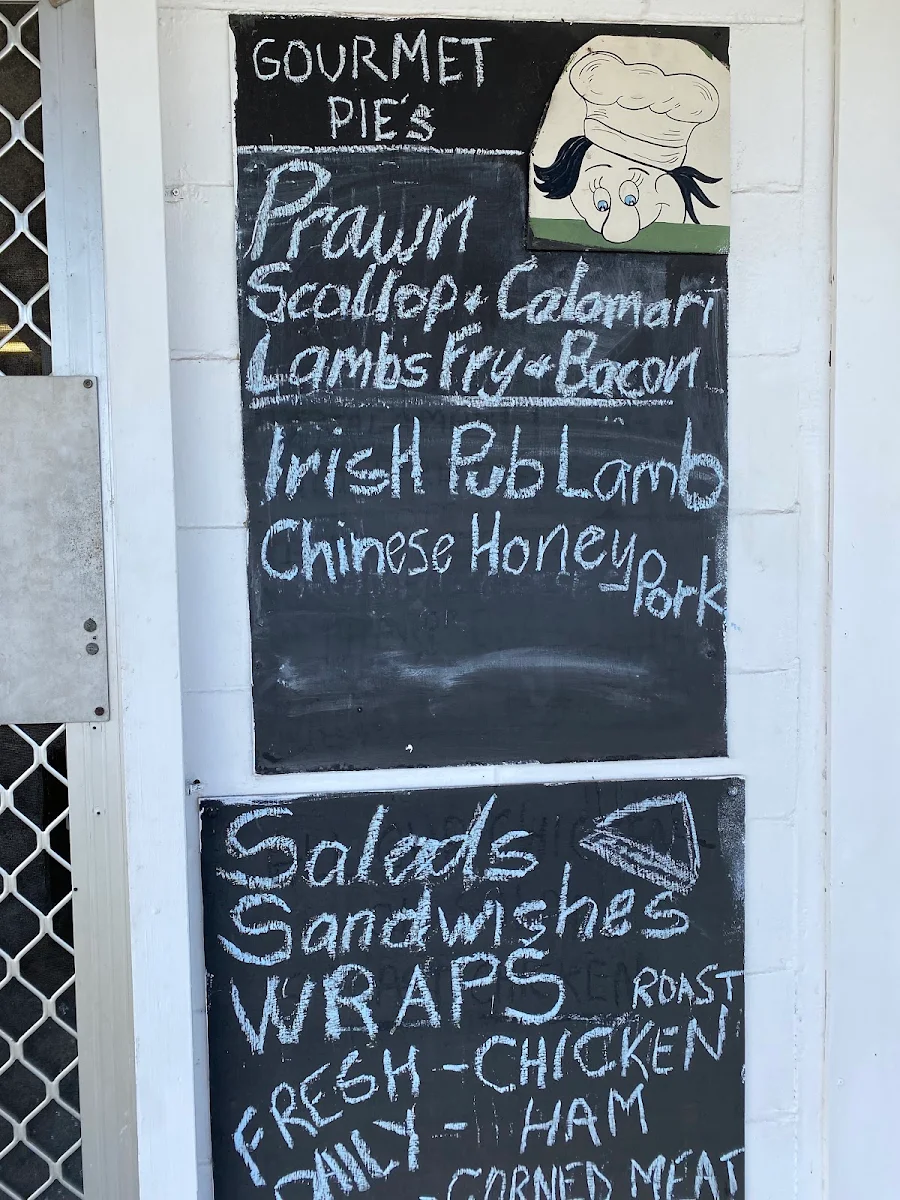 GOURMET
PIE'S
Prawn
Scallop & Calamari
Lamb's Fry & Bacon
IrisH Pub Lamb
Chinese Honey
Pork
Salads
Sandwishes
WRAPS
ROAST
FRESH - CHICKEN
DAILY - HAM
- CORNED MEAT